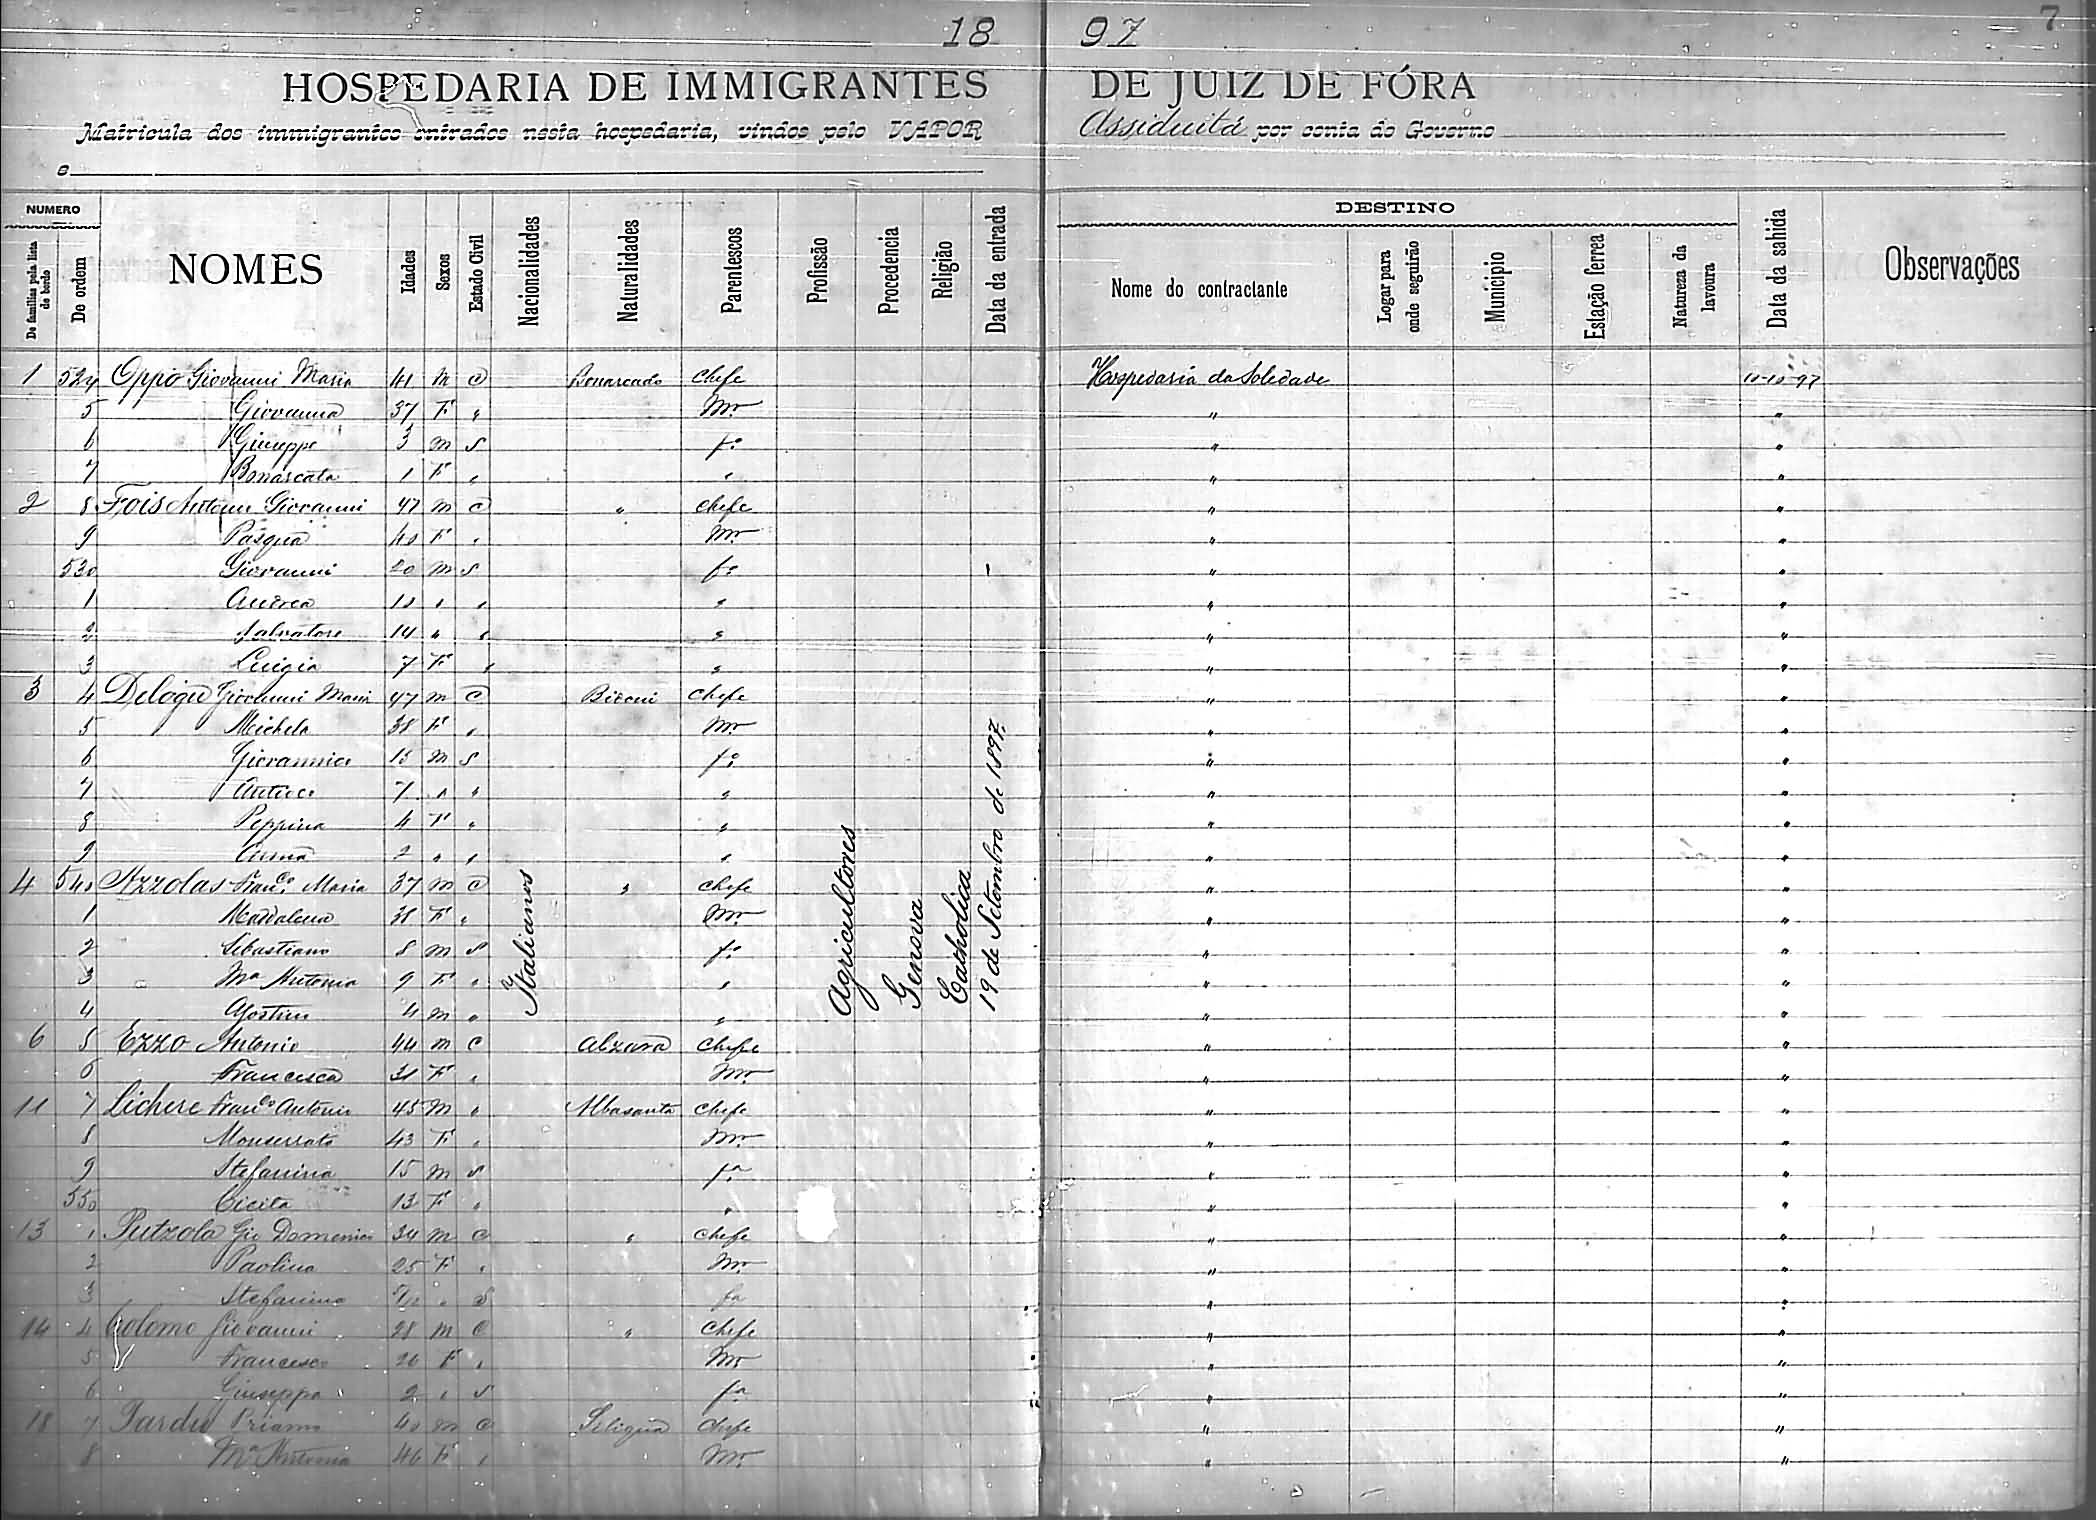 18 97
7
HOSPEDARIA DE IMMIGRANTES DE JUIZ DE FÓRA
Matricula dos immigrantes entrados nesta hospedaria, vindos pelo VAPOR Assiduitá por conta do Governo
e
NUMERO
DESTINO
De familias pela lista de bordo
De ordem
NOMES
Idades
Sexos
Estado Civil
Nacionalidades
Naturalidades
Parentescos
Profissão
Procedencia
Religião
Data da entrada
Nome do contractante
Logar para onde seguirão
Municipio
Estação ferrea
Natureza da lavoura
Data da sahida
Observações
1 524 Oppo Giovanni Maria 41 M C Bonarcado Chefe Hospedaria da Soledade 10-10-97
5 Giovanna 37 F " Mr. " "
6 Giuseppe 3 M S fo " "
7 Bonarcata 1 F " " " "
2 8 Fois Antonio Giovanni 47 M C " Chefe " "
9 Pasqua 40 F " Mr. " "
530 Giovanni 20 M S fo " "
1 Andrea " " " " "
2 Salvatore 14 " " " " "
3 Luigia 7 F " " " "
3 4 Delogu Giovanni Maria 47 M C Chefe " "
5 Michela 38 F " Mr. " "
6 Giovannico M S fo " "
7 Antioco 7 " " " " "
8 Peppina 4 F " " " "
9 Anna 2 " " " " "
4 540 Azzolas Franco Maria 37 M C " Chefe " "
1 Maddalena 38 F " Mr. " "
2 Sebastiano 8 M S fo " "
3 Ma Antonia 9 F " " " "
4 Agostino 4 M " " " "
6 5 Ezzo Antonio 44 M C Abzara Chefe " "
6 Francesca 31 F " Mr. " "
11 7 Lichere Franco Antonio 45 M " Abasanta Chefe " "
8 Monserrata 43 F " Mr. " "
9 Stefanina 15 M S fa " "
550 Cicita 13 F " " " "
13 1 Putzola Gio Domenico 34 M C " Chefe " "
2 Paolina 25 F " Mr. " "
3 Stefanina " S fa " "
14 4 Colomo Giovanni 28 M C " Chefe " "
5 Francesca 26 F " Mr. " "
6 Giuseppa 2 " S fa " "
18 7 Pardu Priamo 40 M C Siligua Chefe " "
8 Ma Antonia 46 F " Mr. " "
Italianos
Agricultores
Genova
Catholica
19 de Setembro de 1897.